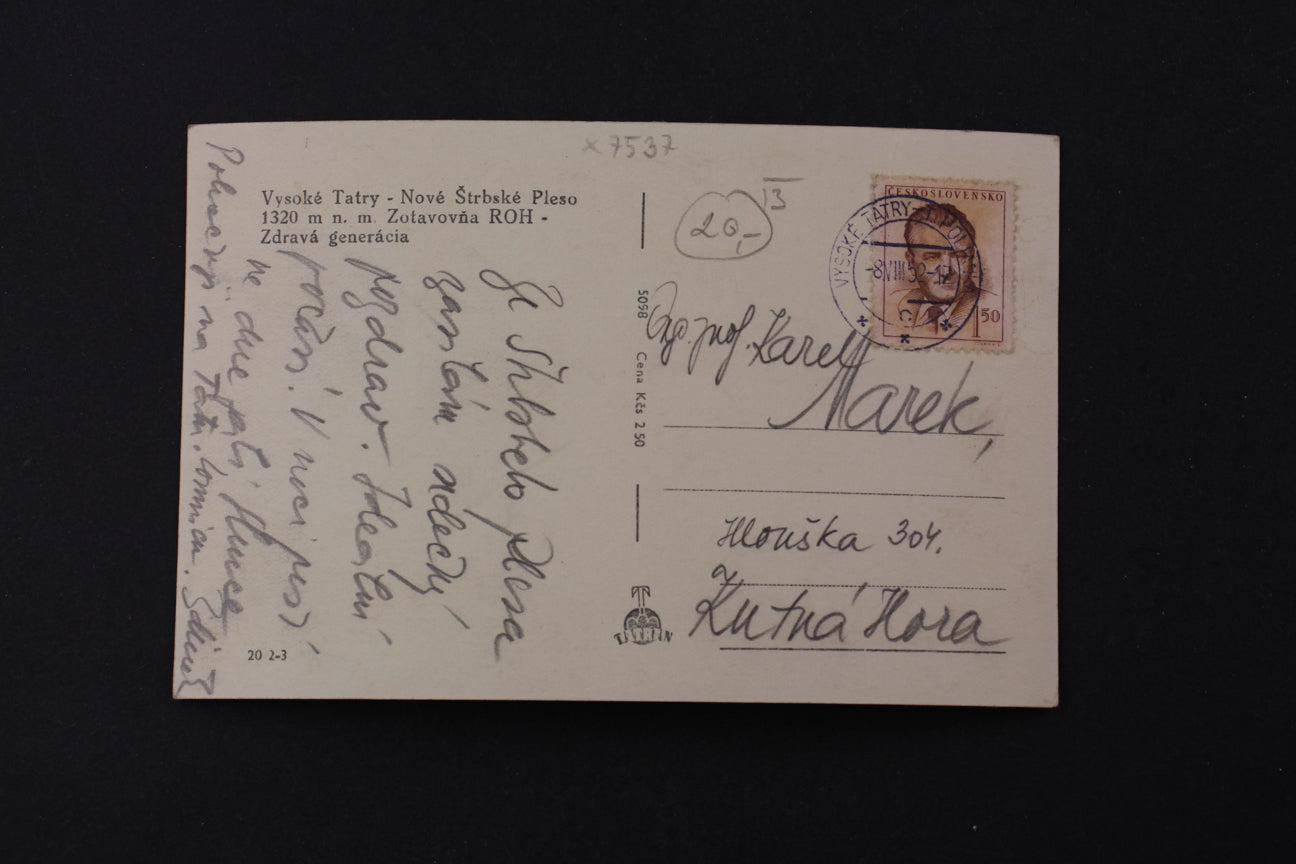 x 7537
Vysoké Tatry - Nové Štrbské Pleso
1320 m n. m. Zotavovňa ROH -
Zdravá generácia
Ze Štrbského plesa
zasílám srdečný
pozdrav. Ideální
počasí. V noci prší
ve dne pálí slunce
na Tatr. Lomnici.
20 2-3
5098 Cena Kčs 2 50
TATRAN
20,-
13
ČESKOSLOVENSKO
1 50
VYSOKÉ TATRY
-8.VIII.52-12
C
prof. Karel
Marek,
Hlouška 304.
Kutná Hora